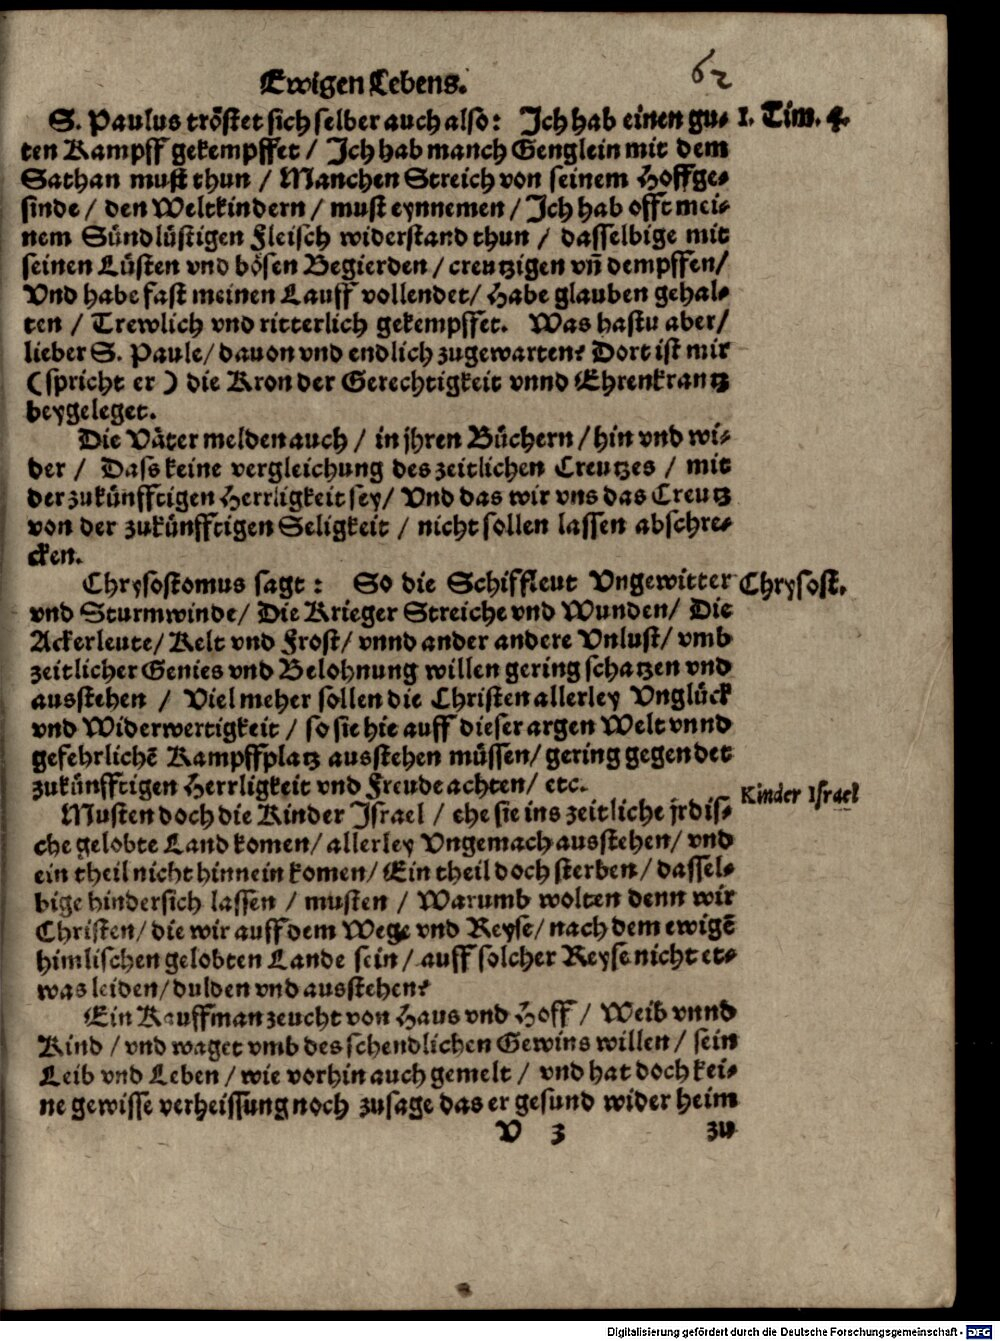 Ewigen Lebens.
62
S. Paulus tröstet sich selber auch also: Ich hab einen gu-
1. Tim. 4.
ten Kampff gekempffet / Ich hab manch Genglein mit dem
Sathan must thun / Manchen Streich von seinem Hoffge-
sinde / den Weltkindern / must eynnemen / Ich hab offt mei-
nem Sündlüstigen Fleisch widerstand thun / dasselbige mit
seinen Lüsten vnd bösen Begierden / creutzigen vn̄ dempffen/
Vnd habe fast meinen Lauff vollendet/ Habe glauben gehal-
ten / Trewlich vnd ritterlich gekempffet. Was hastu aber/
lieber S. Paule/ dauon vnd endlich zugewarten? Dort ist mir
(spricht er) die Kron der Gerechtigkeit vnnd Ehrenkrantz
beygeleget.
Die Väter melden auch / in jhren Büchern / hin vnd wi-
der / Dass keine vergleichung des zeitlichen Creutzes / mit
der zukünfftigen Herrligkeit sey/ Vnd das wir vns das Creutz
von der zukünfftigen Seligkeit / nicht sollen lassen abschre-
cken.
Chrysostomus sagt: So die Schiffleut Vngewitter
Chrysost.
vnd Sturmwinde/ Die Krieger Streiche vnd Wunden/ Die
Ackerleute/ Kelt vnd Frost/ vnnd ander andere Vnlust/ vmb
zeitlicher Genies vnd Belohnung willen gering schatzen vnd
ausstehen / Viel meher sollen die Christen allerley Vnglück
vnd Widerwertigkeit / so sie hie auff dieser argen Welt vnnd
gefehrlichē Kampffplatz ausstehen müssen/ gering gegen der
zukünfftigen Herrligkeit vnd Freude achten/ etc.
Kinder Israel
Musten doch die Kinder Israel / ehe sie ins zeitliche jrdis-
che gelobte Land komen/ allerley Vngemach ausstehen/ vnd
ein theil nicht hinnein komen/ Ein theil doch sterben/ dassel-
bige hindersich lassen / musten / Warumb wolten denn wir
Christen/ die wir auff dem Wege vnd Reyse/ nach dem ewigē
himlischen gelobten Lande sein/ auff solcher Reyse nicht et-
was leiden/ dulden vnd ausstehen?
Ein Kauffman zeucht von Haus vnd Hoff / Weib vnnd
Kind / vnd waget vmb des schendlichen Gewins willen / sein
Leib vnd Leben / wie vorhin auch gemelt / vnd hat doch kei-
ne gewisse verheissung noch zusage das er gesund wider heim
V 3 zu
Digitalisierung gefördert durch die Deutsche Forschungsgemeinschaft - DFG